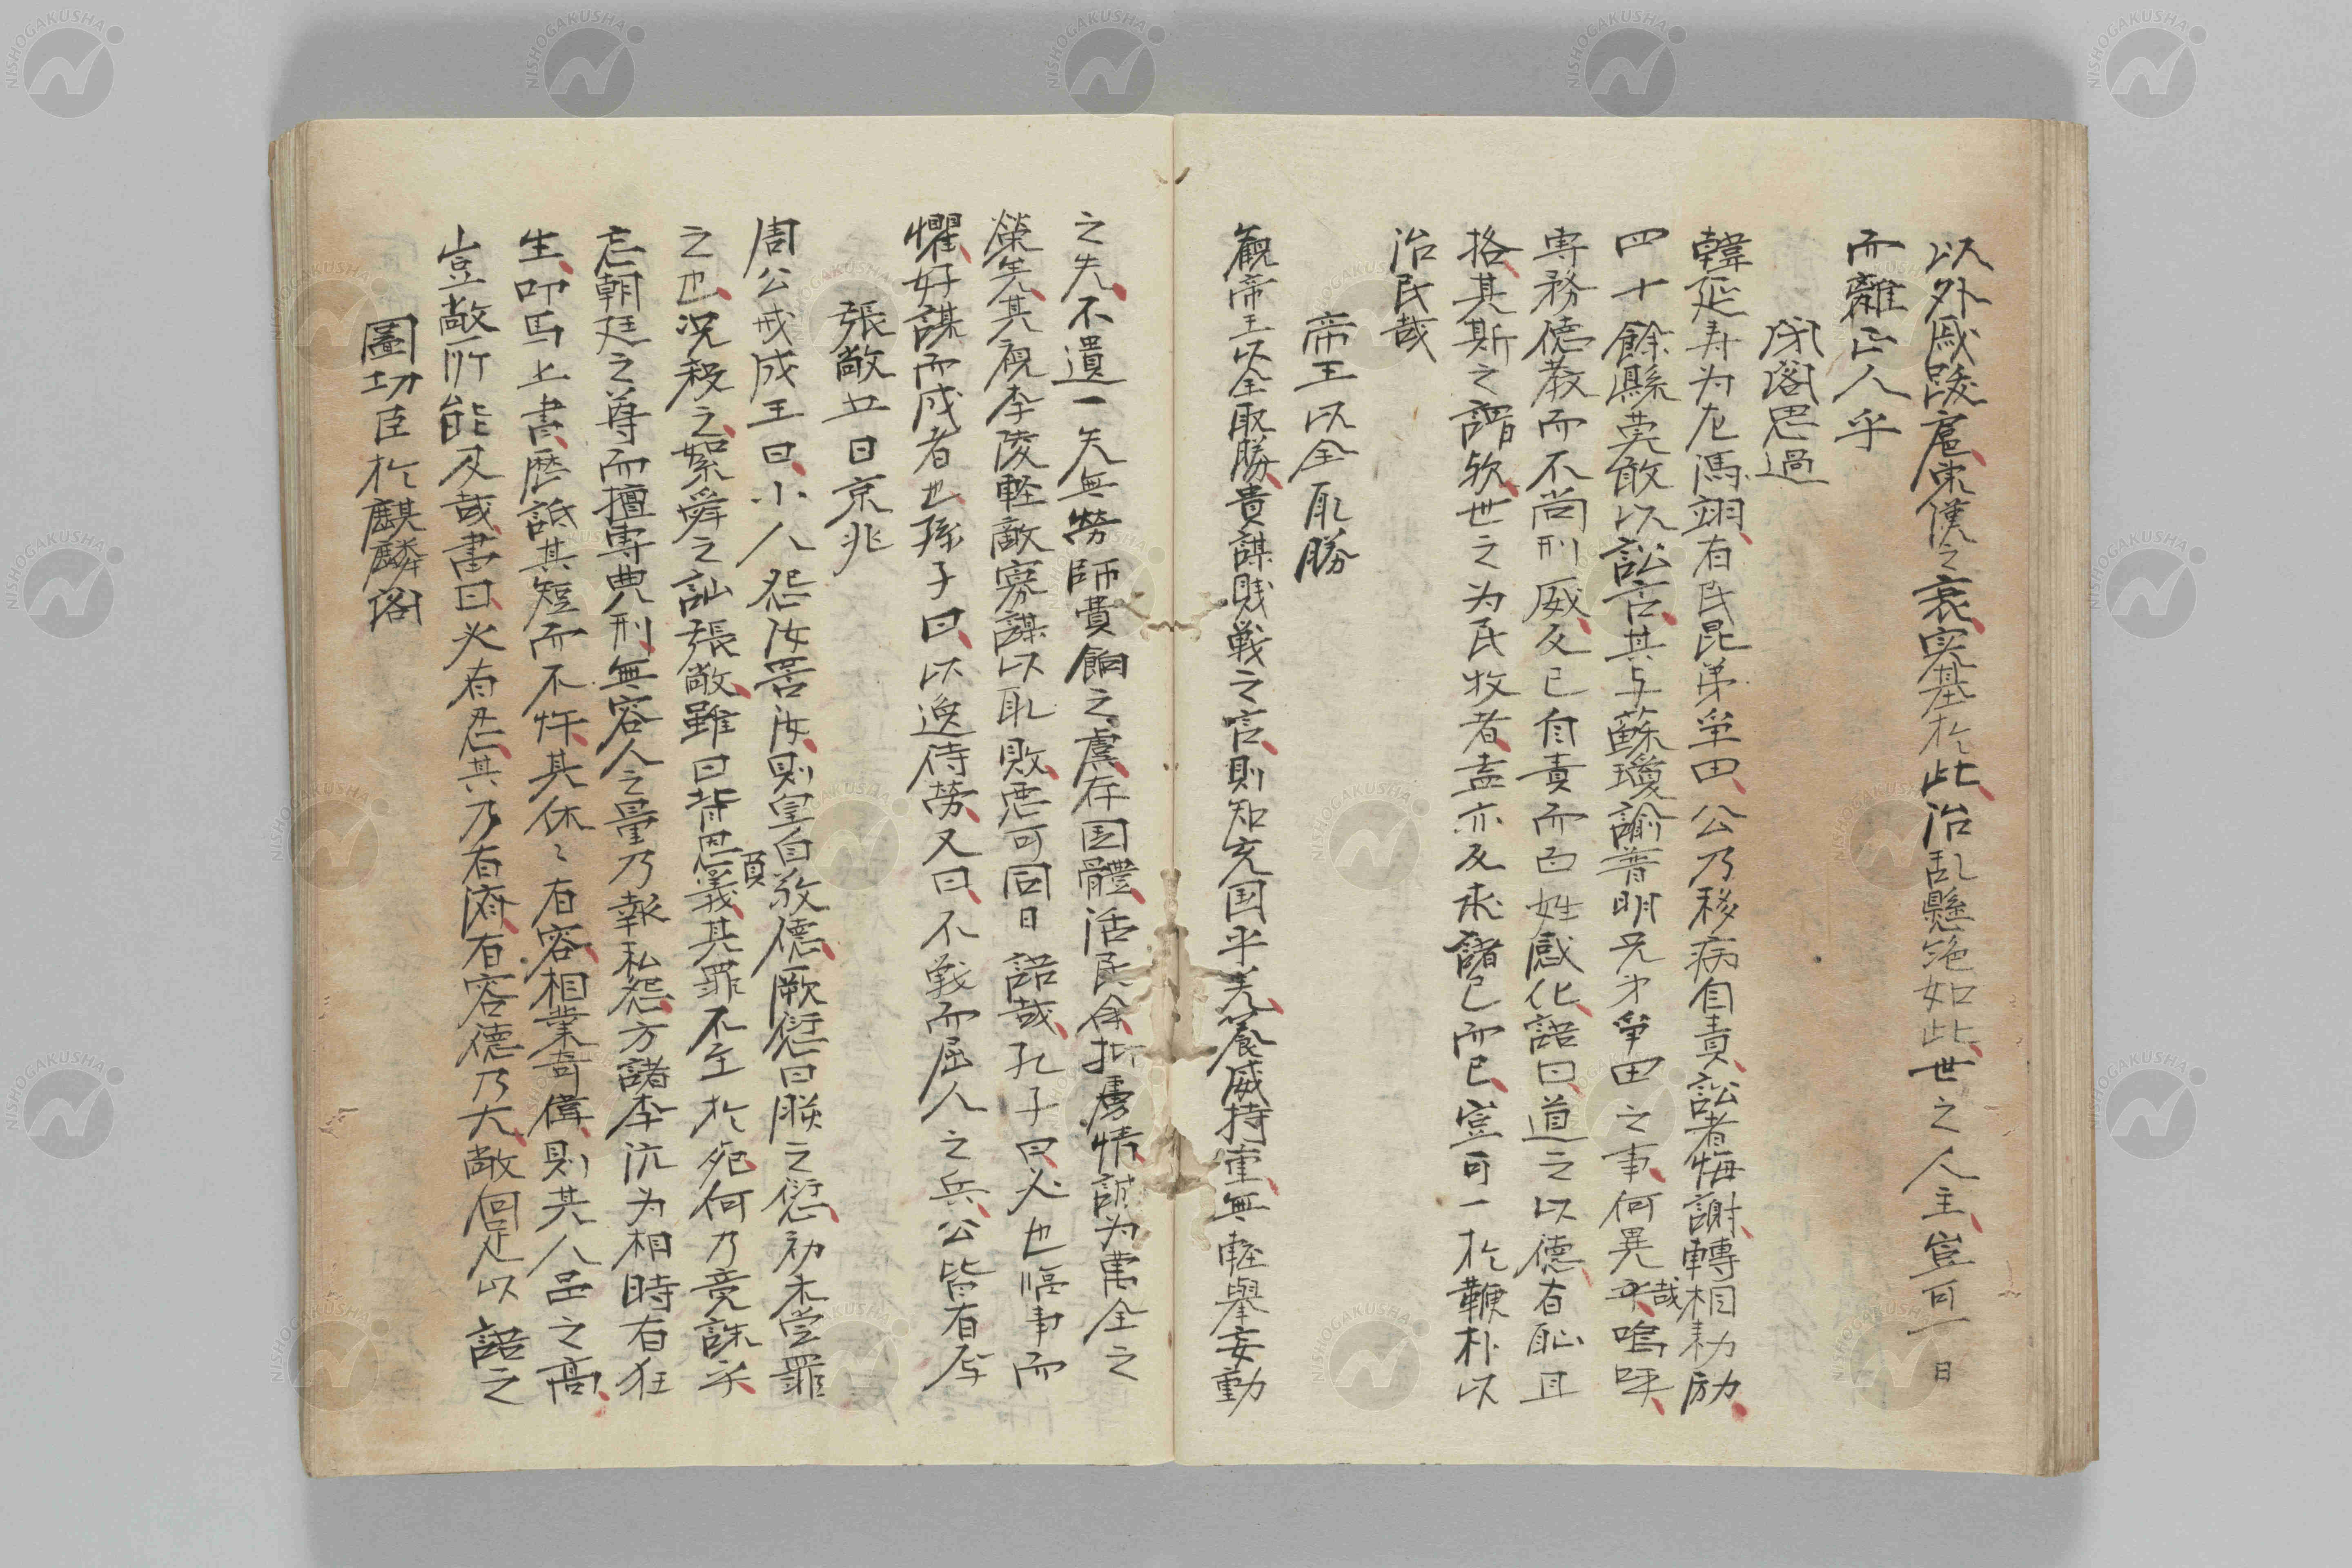 以外戚跋扈東漢之衰実基於此治乱懸絶如此世之人主豈可一日
而離正人乎
閉閤思過
韓延寿为左馮翊有民昆弟争田公乃移病自責訟者悔謝轉相勅励
四十餘縣莫敢以訟言其与蘇瓊諭普明兄弟争田之事何異哉嗚呼
専務德教而不尚刑威反己自責而百姓感化語曰道之以德有恥且
格其斯之謂欤世之为民牧者盍亦反求諸己而已豈可一於鞭朴以
治民哉
帝王以全取勝
觀帝王以全取勝貴謀賎戦之言則知充国平羌養威持重無軽舉妄動
之失不遺一矢無勞師費餉之虞存国體活民命折虜情誠为萬全之
榮先其視李陵軽敵寡謀以取敗
同日語哉孔子曰必也臨事而
懼好謀而成者也孫子曰以逸待勞又曰不戦而屈人之兵公皆有焉
張敞五日京兆
周公戒成王曰小人怨汝詈汝則皇自敬德厥愆曰朕之愆初未嘗罪
之也况殺之絮舜之訕張敞雖曰背恩義頁其罪不至於死何乃竟誅乎
忘朝廷之尊而擅専典刑無容人之量乃報私怨方諸李沆为相時有狂
生叩馬上書歴詆其短而不忤其休〻有容相業奇偉則其人品之高
豈敞所能及哉書曰必有忍其乃有濟有容德乃大敞何足以語之
圖功臣於麒麟閣